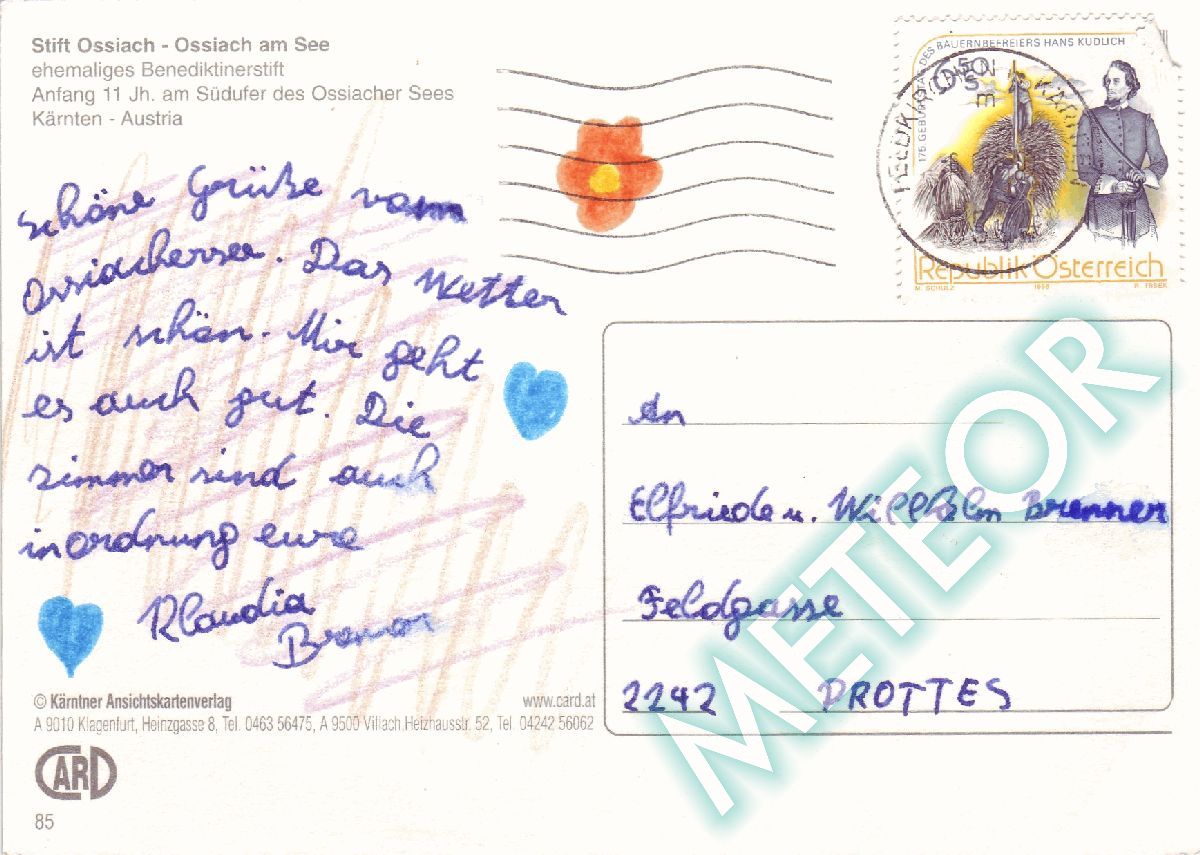 Stift Ossiach - Ossiach am See
ehemaliges Benediktinerstift
Anfang 11 Jh. am Südufer des Ossiacher Sees
Kärnten - Austria
175. GEBURTSTAG DES BAUERNBEFREIERS HANS KUDLICH
6 50
S
Republik Österreich
M. SCHULZ 1998
schöne Grüße vom
Ossiachersee. Das Wetter
ist schön. Mir geht
es auch gut. Die
zimmer sind auch
in ordnung eure
Klaudia
An
Elfriede u. Willhelm Brenner
Feldgasse
2242 PROTTES
© Kärntner Ansichtskartenverlag www.card.at
A 9010 Klagenfurt, Heinzgasse 8, Tel. 0463 56475, A 9500 Villach, Heizhausstr. 52, Tel. 04242 56062
CARD
85
METEOR